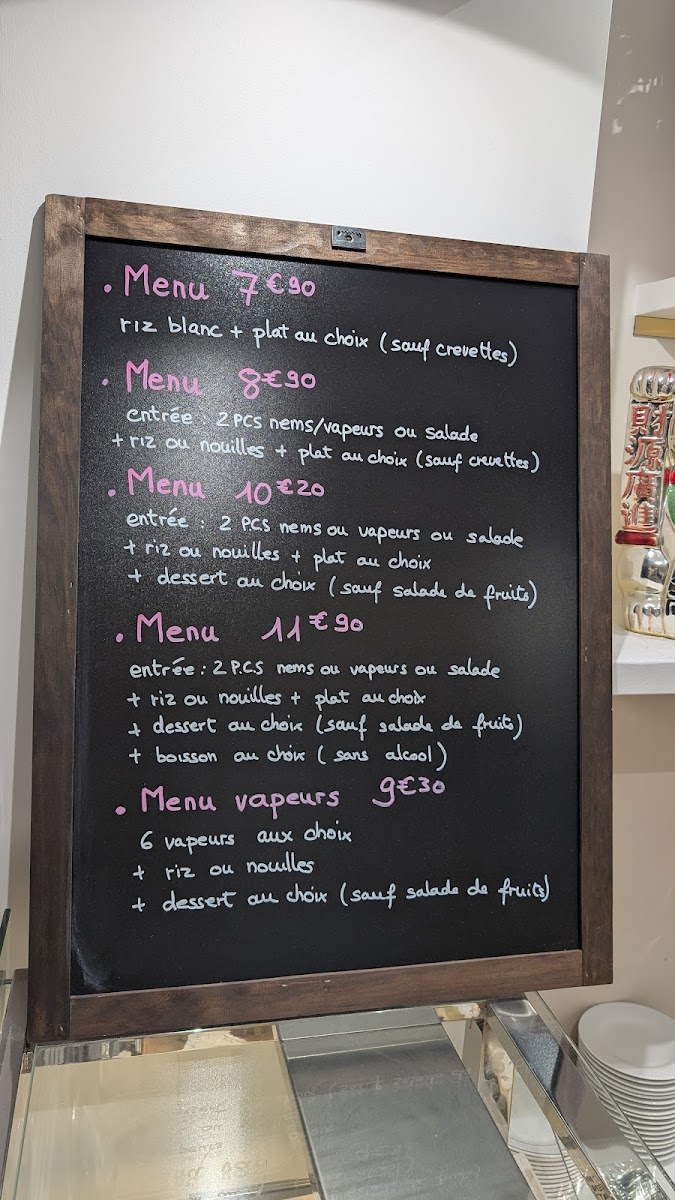 . Menu 7€90
riz blanc + plat au choix (sauf crevettes)
. Menu 8€90
entrée : 2 PCS nems/vapeurs ou salade
+ riz ou nouilles + plat au choix (sauf crevettes)
. Menu 10€20
entrée : 2 PCS nems ou vapeurs ou salade
+ riz ou nouilles + plat au choix
+ dessert au choix (sauf salade de fruits)
. Menu 11€90
entrée : 2 P.CS nems ou vapeurs ou salade
+ riz ou nouilles + plat au choix
+ dessert au choix (sauf salade de fruits)
+ boisson au choix ( sans alcool)
. Menu vapeurs 9€30
6 vapeurs aux choix
+ riz ou nouilles
+ dessert au choix (sauf salade de fruits)
財源廣進